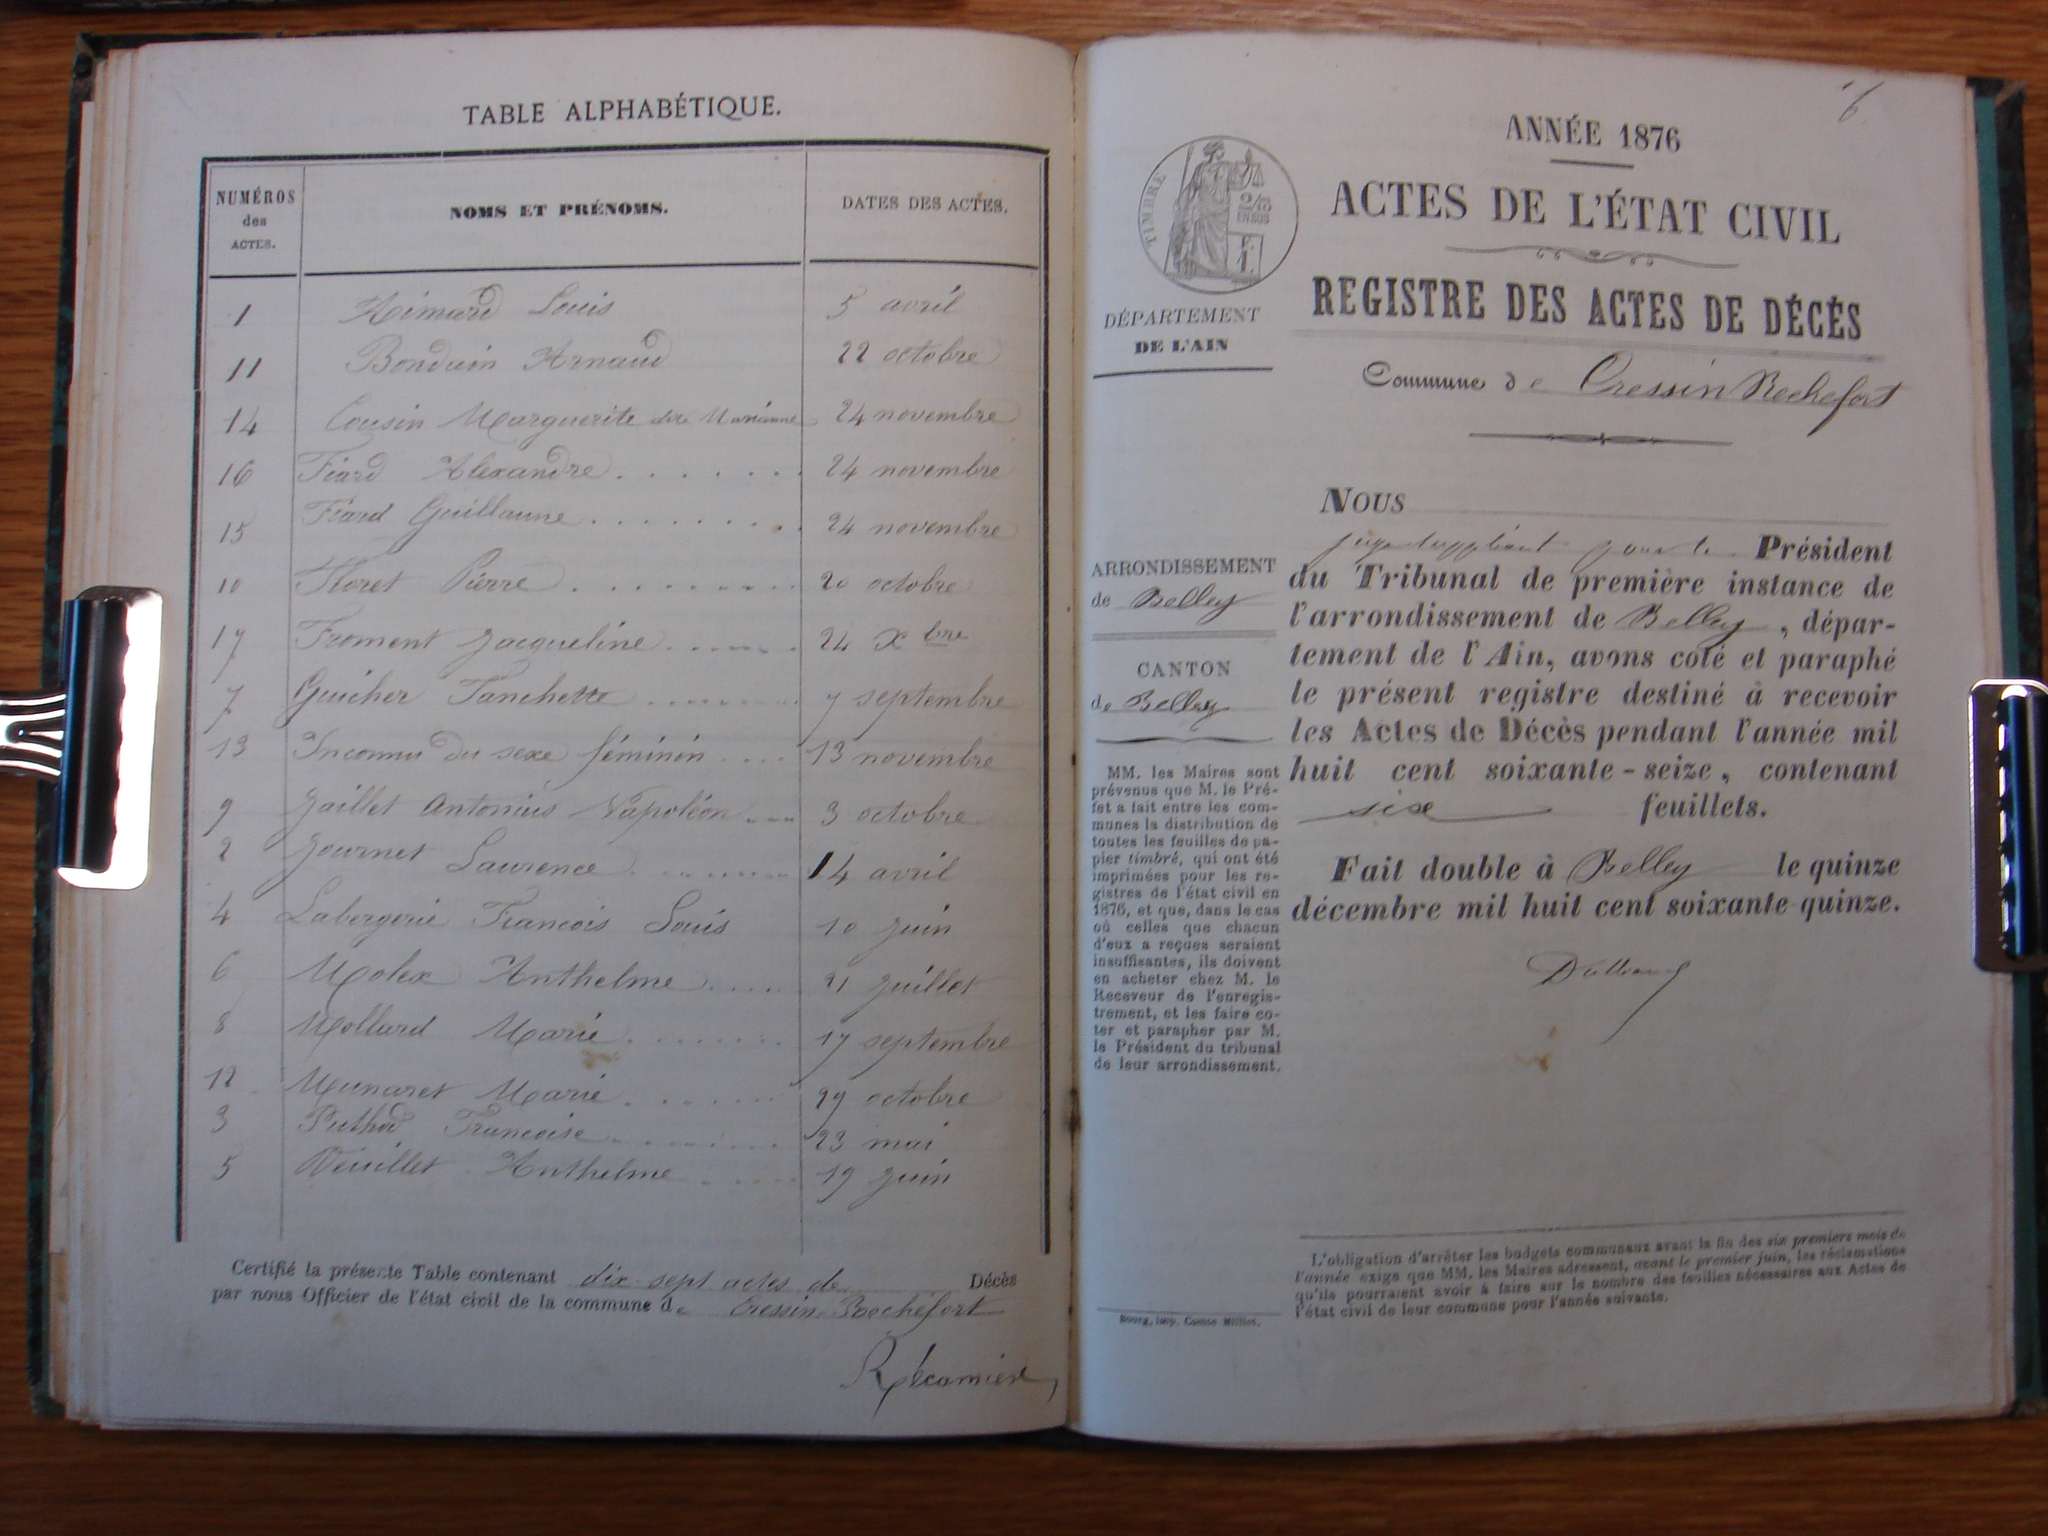 TABLE ALPHABÉTIQUE.
NUMÉROS des ACTES. NOMS ET PRÉNOMS. DATES DES ACTES.
1 Aimard Louis 5 avril
11 Bonduin Arnaud 22 octobre
14 Cousin Marguerite dite Marianne 24 novembre
16 Fiard Alexandre 24 novembre
15 Fiard Guillaume 24 novembre
10 Floret Pierre 20 octobre
17 Froment Jacqueline 24 Xbre
7 Guicher Fanchette 7 septembre
13 Inconnu du sexe féminin 13 novembre
9 Jaillet Antonius Napoléon 3 octobre
2 Journet Laurence 14 avril
4 Labergerie Francois Louis 10 juin
6 Molex Anthelme 21 juillet
8 Mollard Marie 17 septembre
12 Munaret Marie 29 octobre
3 Puthod Francoise 23 mai
5 Veuillet Anthelme 19 juin
Certifié la présente Table contenant dix sept actes de Décès
par nous Officier de l'état civil de la commune de Cressin-Rochefort
Récamier
6
ANNÉE 1876
ACTES DE L'ÉTAT CIVIL
REGISTRE DES ACTES DE DÉCÈS
Commune de Cressin Rochefort
TIMBRE
2/10
EN SUS
f.
1.
DÉPARTEMENT
DE L'AIN
ARRONDISSEMENT
de Belley
CANTON
de Belley
MM. les Maires sont
prévenus que M. le Pré-
fet a fait entre les com-
munes la distribution de
toutes les feuilles de pa-
pier timbré, qui ont été
imprimées pour les re-
gistres de l'état civil en
1876, et que, dans le cas
où celles que chacun
d'eux a reçues seraient
insuffisantes, ils doivent
en acheter chez M. le
Receveur de l'enregis-
trement, et les faire co-
ter et parapher par M.
le Président du tribunal
de leur arrondissement.
Bourg, imp. Comte Milliet.
NOUS
juge suppléant pour le Président
du Tribunal de première instance de
l'arrondissement de Belley, dépar-
tement de l'Ain, avons coté et paraphé
le présent registre destiné à recevoir
les Actes de Décès pendant l'année mil
huit cent soixante-seize, contenant
six feuillets.
Fait double à Belley le quinze
décembre mil huit cent soixante-quinze.
L'obligation d'arrêter les budgets communaux avant la fin des six premiers mois de
l'année exige que MM. les Maires adressent, avant le premier juin, les réclamations
qu'ils pourraient avoir à faire sur le nombre des feuilles nécessaires aux Actes de
l'état civil de leur commune pour l'année suivante.